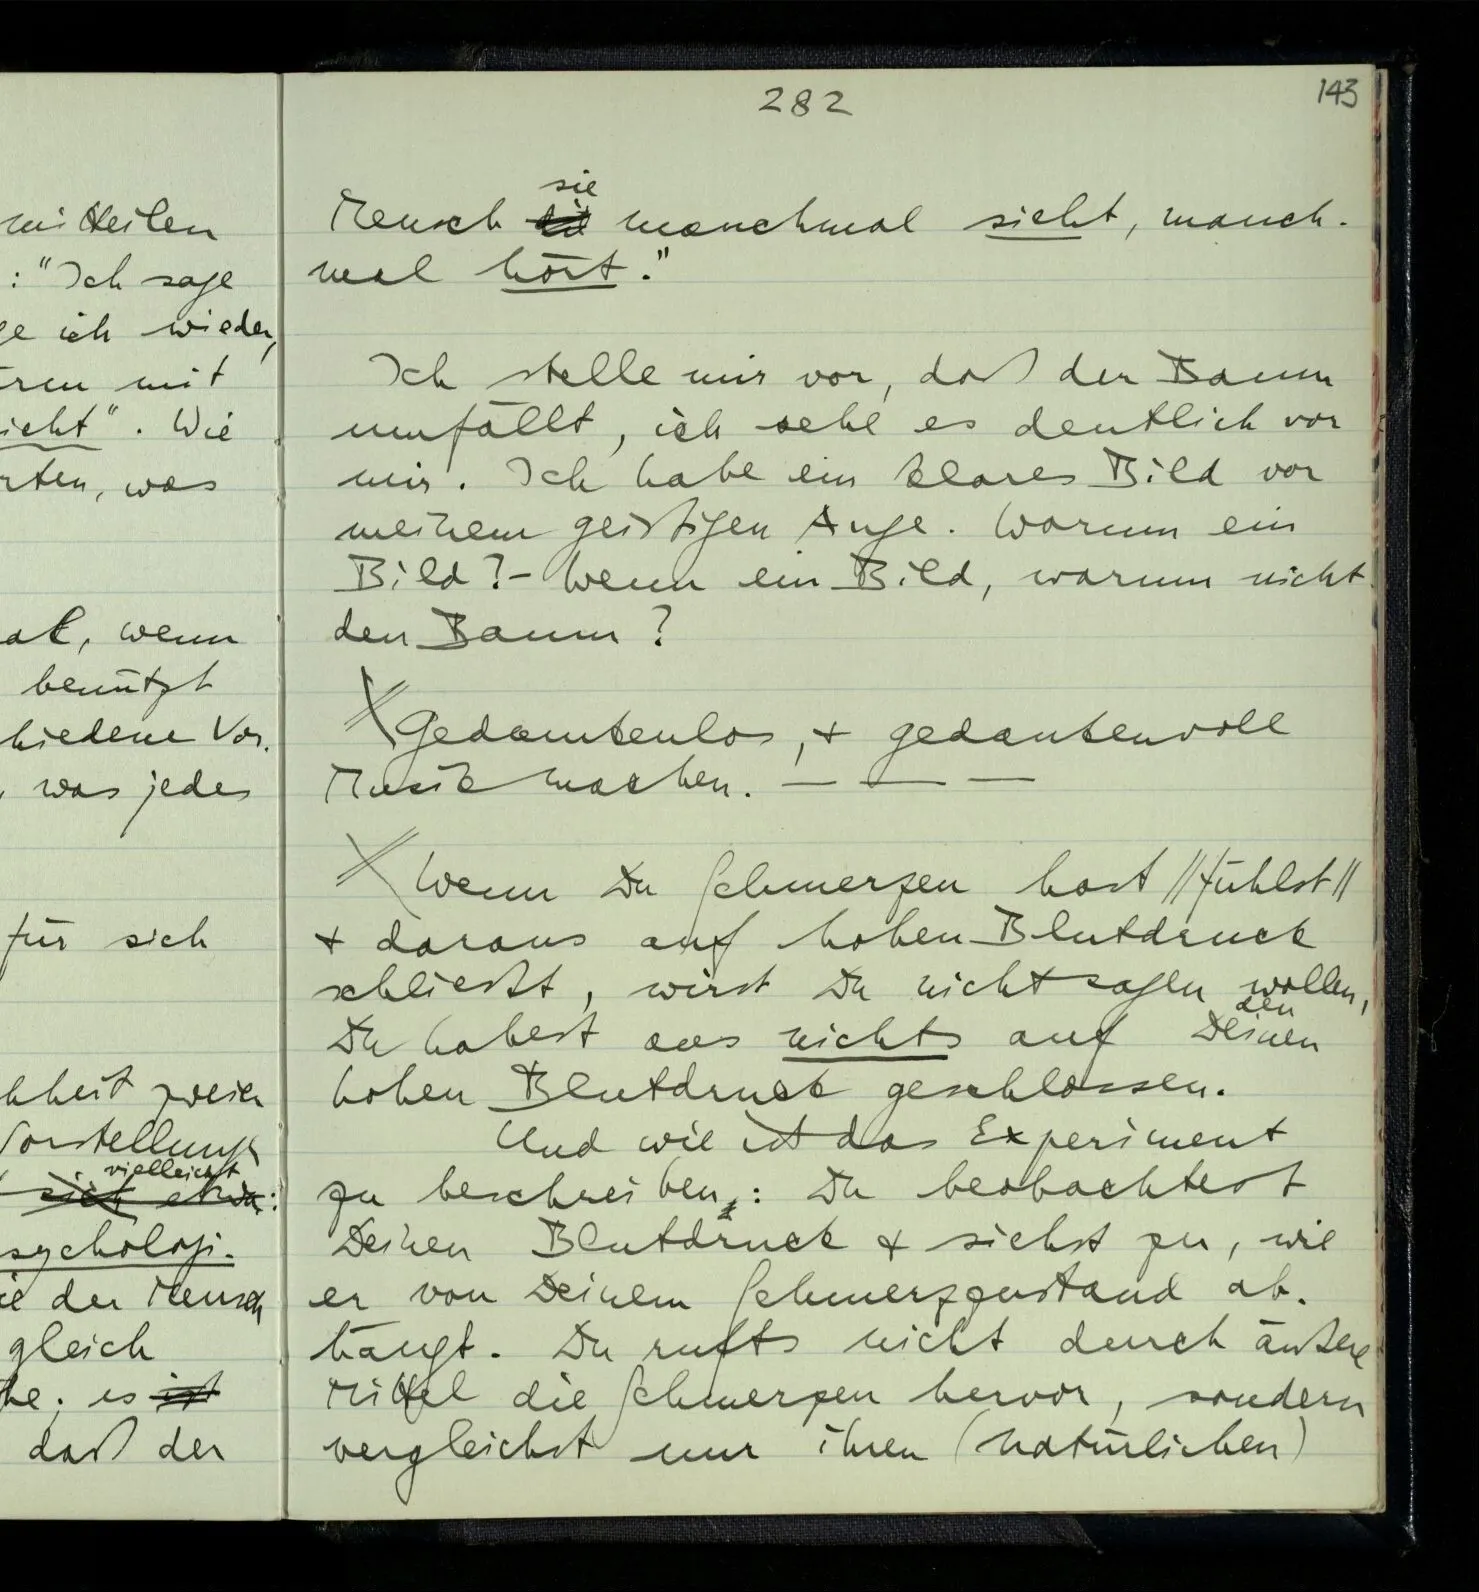 mitteilen
: "Ich sage
ge ich wieder,
ren mit
icht". Wie
rten, was
wenn
benützt
hiedene Vor-
, was jedes
für sich
hheit zweier
Vorstellung
vielleicht
sich etwa:
sychologi-
ie der Mensch
gleich
he; es ist
daß der
282
143
sie
Mensch manchmal sieht, manch-
mal hört."
Ich stelle mir vor, daß der Baum
umfällt, ich sehe es deutlich vor
mir. Ich habe ein klares Bild vor
meinem geistigen Auge. Warum ein
Bild? – Wenn ein Bild, warum nicht
den Baum?
Gedankenlos, & gedankenvoll
Musik machen. – — –
Wenn Du Schmerzen hast //fühlst//
& daraus auf hohen Blutdruck
schließt, wirst Du nicht sagen wollen,
den
Du habest aus nichts auf Deinen
hohen Blutdruck geschlossen.
Und wie ist das Experiment
zu beschreiben: Du beobachtest
Deinen Blutdruck & siehst zu, wie
er von Deinem Schmerzzustand ab-
hängt. Du rufts nicht durch äußere
Mittel die Schmerzen hervor, sondern
vergleichst nur ihren (natürlichen)